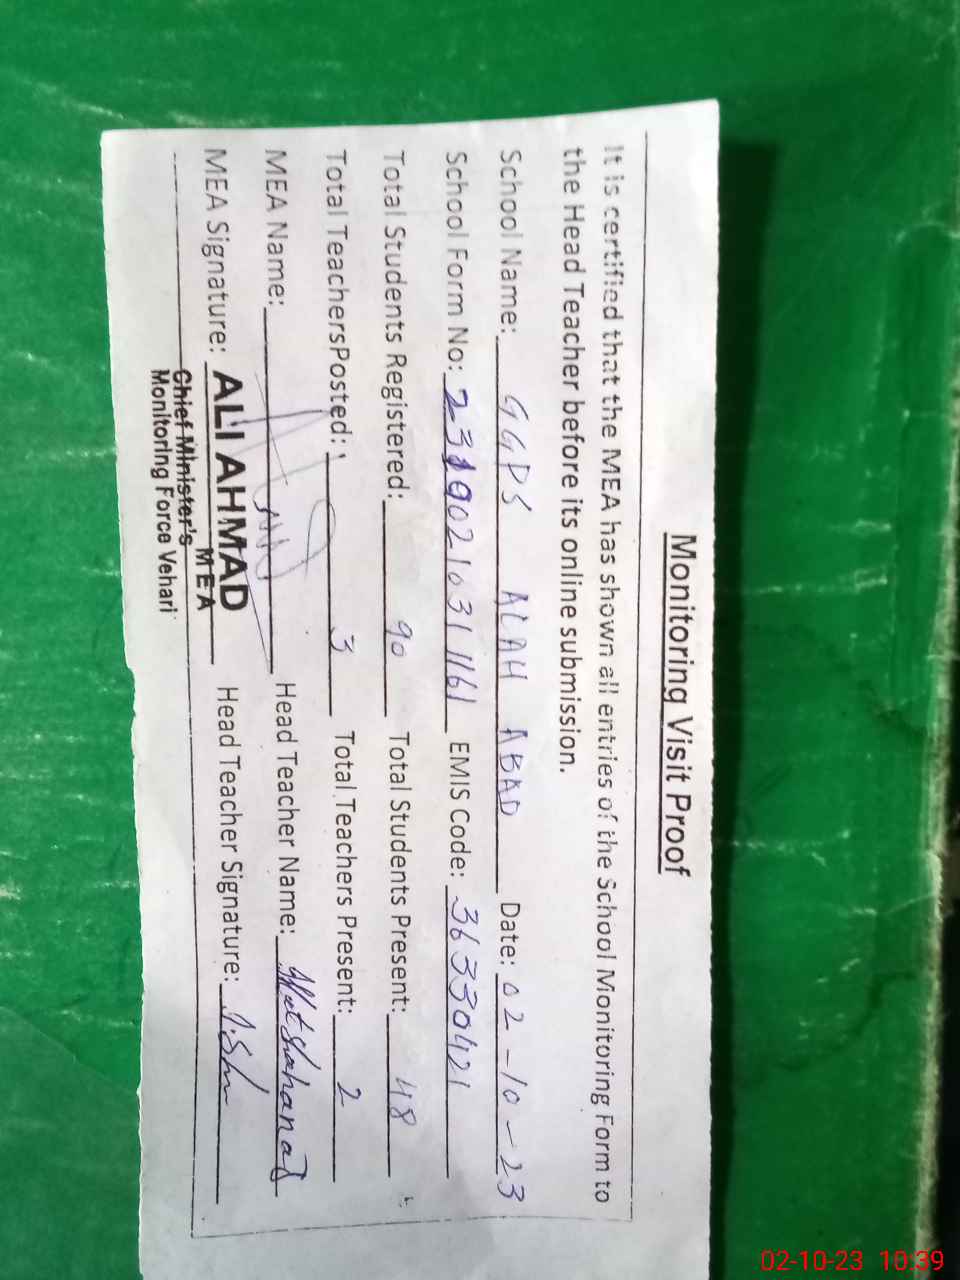 Monitoring Visit Proof
It is certified that the MEA has shown all entries of the School Monitoring Form to
the Head Teacher before its online submission.
School Name: GGPS ALAH ABAD Date: 02-10-23
School Form No: EMIS Code: 36330421
Total Students Registered: 90 Total Students Present: 48
Total TeachersPosted: 3 Total Teachers Present: 2
MEA Name: Head Teacher Name:
MEA Signature: ALI AHMAD Head Teacher Signature:
MEA
Chief Minister's
Monitoring Force Vehari
02-10-23 10:39